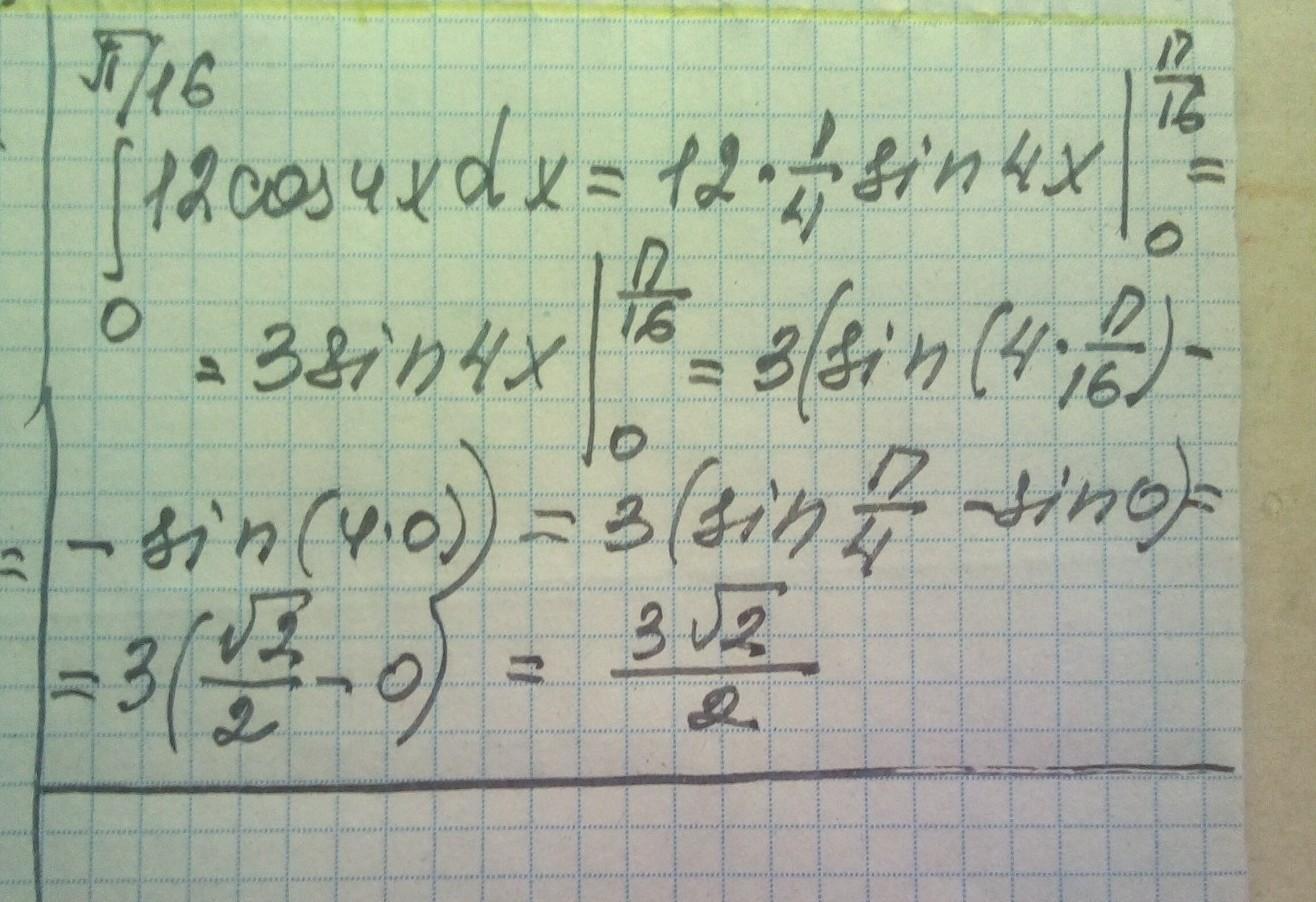 ∫₀^{π/16} 12cos4xdx = 12·1/4 sin4x |₀^{π/16} =
= 3sin4x |₀^{π/16} = 3(sin(4·π/16) -
- sin(4·0)) = 3(sin π/4 - sin0) =
= 3(√2/2 - 0) = 3√2/2